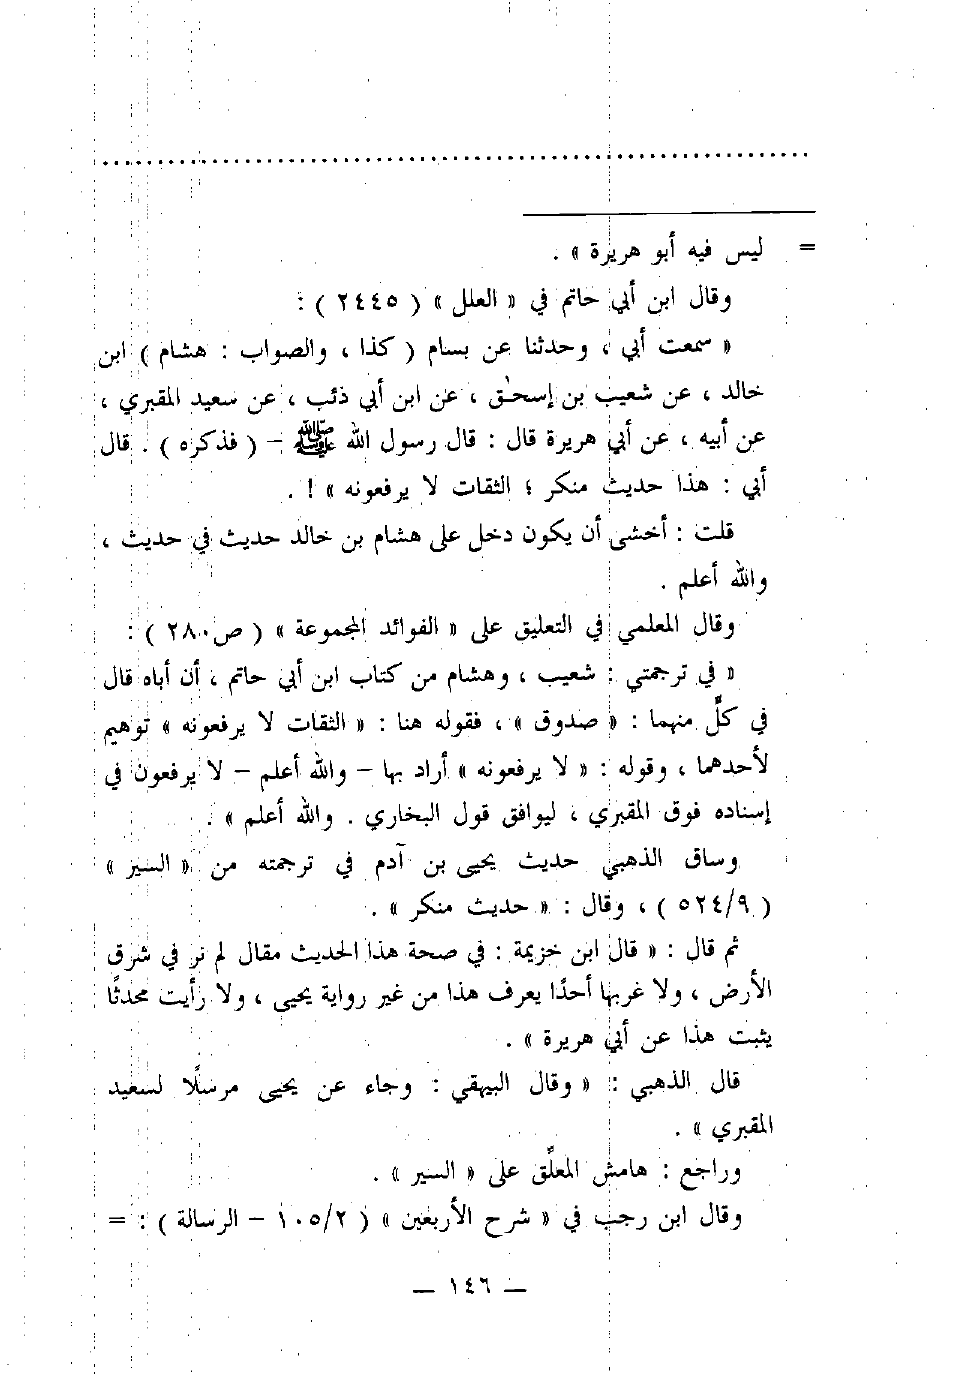 = ليس فيه أبو هريرة » .
وقال ابن أبي حاتم في « العلل » ( ٢٤٤٥ ) :
« سمعت أبي ، وحدثنا عن بسام ( كذا ، والصواب : هشام ) ابن
خالد ، عن شعيب بن إسحٰق ، عن ابن أبي ذئب ، عن سعيد المقبري ،
عن أبيه ، عن أبي هريرة قال : قال رسول الله ﷺ – ( فذكره ) . قال
أبي : هذا حديث منكر ؛ الثقات لا يرفعونه » ! .
قلت : أخشى أن يكون دخل على هشام بن خالد حديث في حديث ،
والله أعلم .
وقال المعلمي في التعليق على « الفوائد المجموعة » ( ص٢٨٠ ) :
« في ترجمتي : شعيب ، وهشام من كتاب ابن أبي حاتم ، أن أباه قال
في كلٍّ منهما : « صدوق » ، فقوله هنا : « الثقات لا يرفعونه » توهيم
لأحدهما ، وقوله : « لا يرفعونه » أراد بها – والله أعلم – لا يرفعون في
إسناده فوق المقبري ، ليوافق قول البخاري . والله أعلم » .
وساق الذهبي حديث يحيى بن آدم في ترجمته من « السير »
( ٥٢٤/٩ ) ، وقال : « حديث منكر » .
ثم قال : « قال ابن خزيمة : في صحة هذا الحديث مقال لم نر في شرق
الأرض ، ولا غربها أحدًا يعرف هذا من غير رواية يحيى ، ولا رأيت محدثًا
يثبت هذا عن أبي هريرة » .
قال الذهبي : « وقال البيهقي : وجاء عن يحيى مرسلًا لسعيد
المقبري » .
وراجع : هامش المعلّق على « السير » .
وقال ابن رجب في « شرح الأربعين » ( ١٠٥/٢ – الرسالة ) : =
— ١٤٦ —